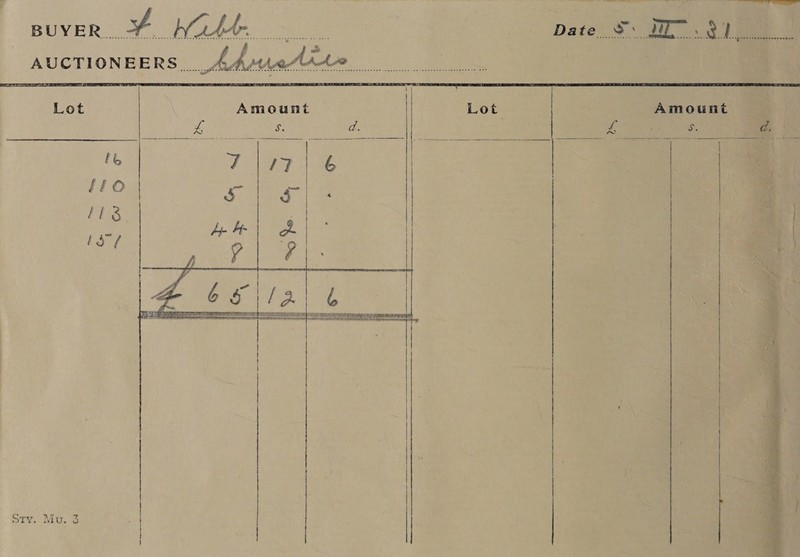 BUYER F Webb. Date 5. III. 31
AUCTIONEERS Christies
Lot Amount Lot Amount
£ s. d. £ s. d.
16 7 17 6
110 5 5 .
113 44 2 .
151 8 8 .
£ 65 12 6
STY. MU. 3